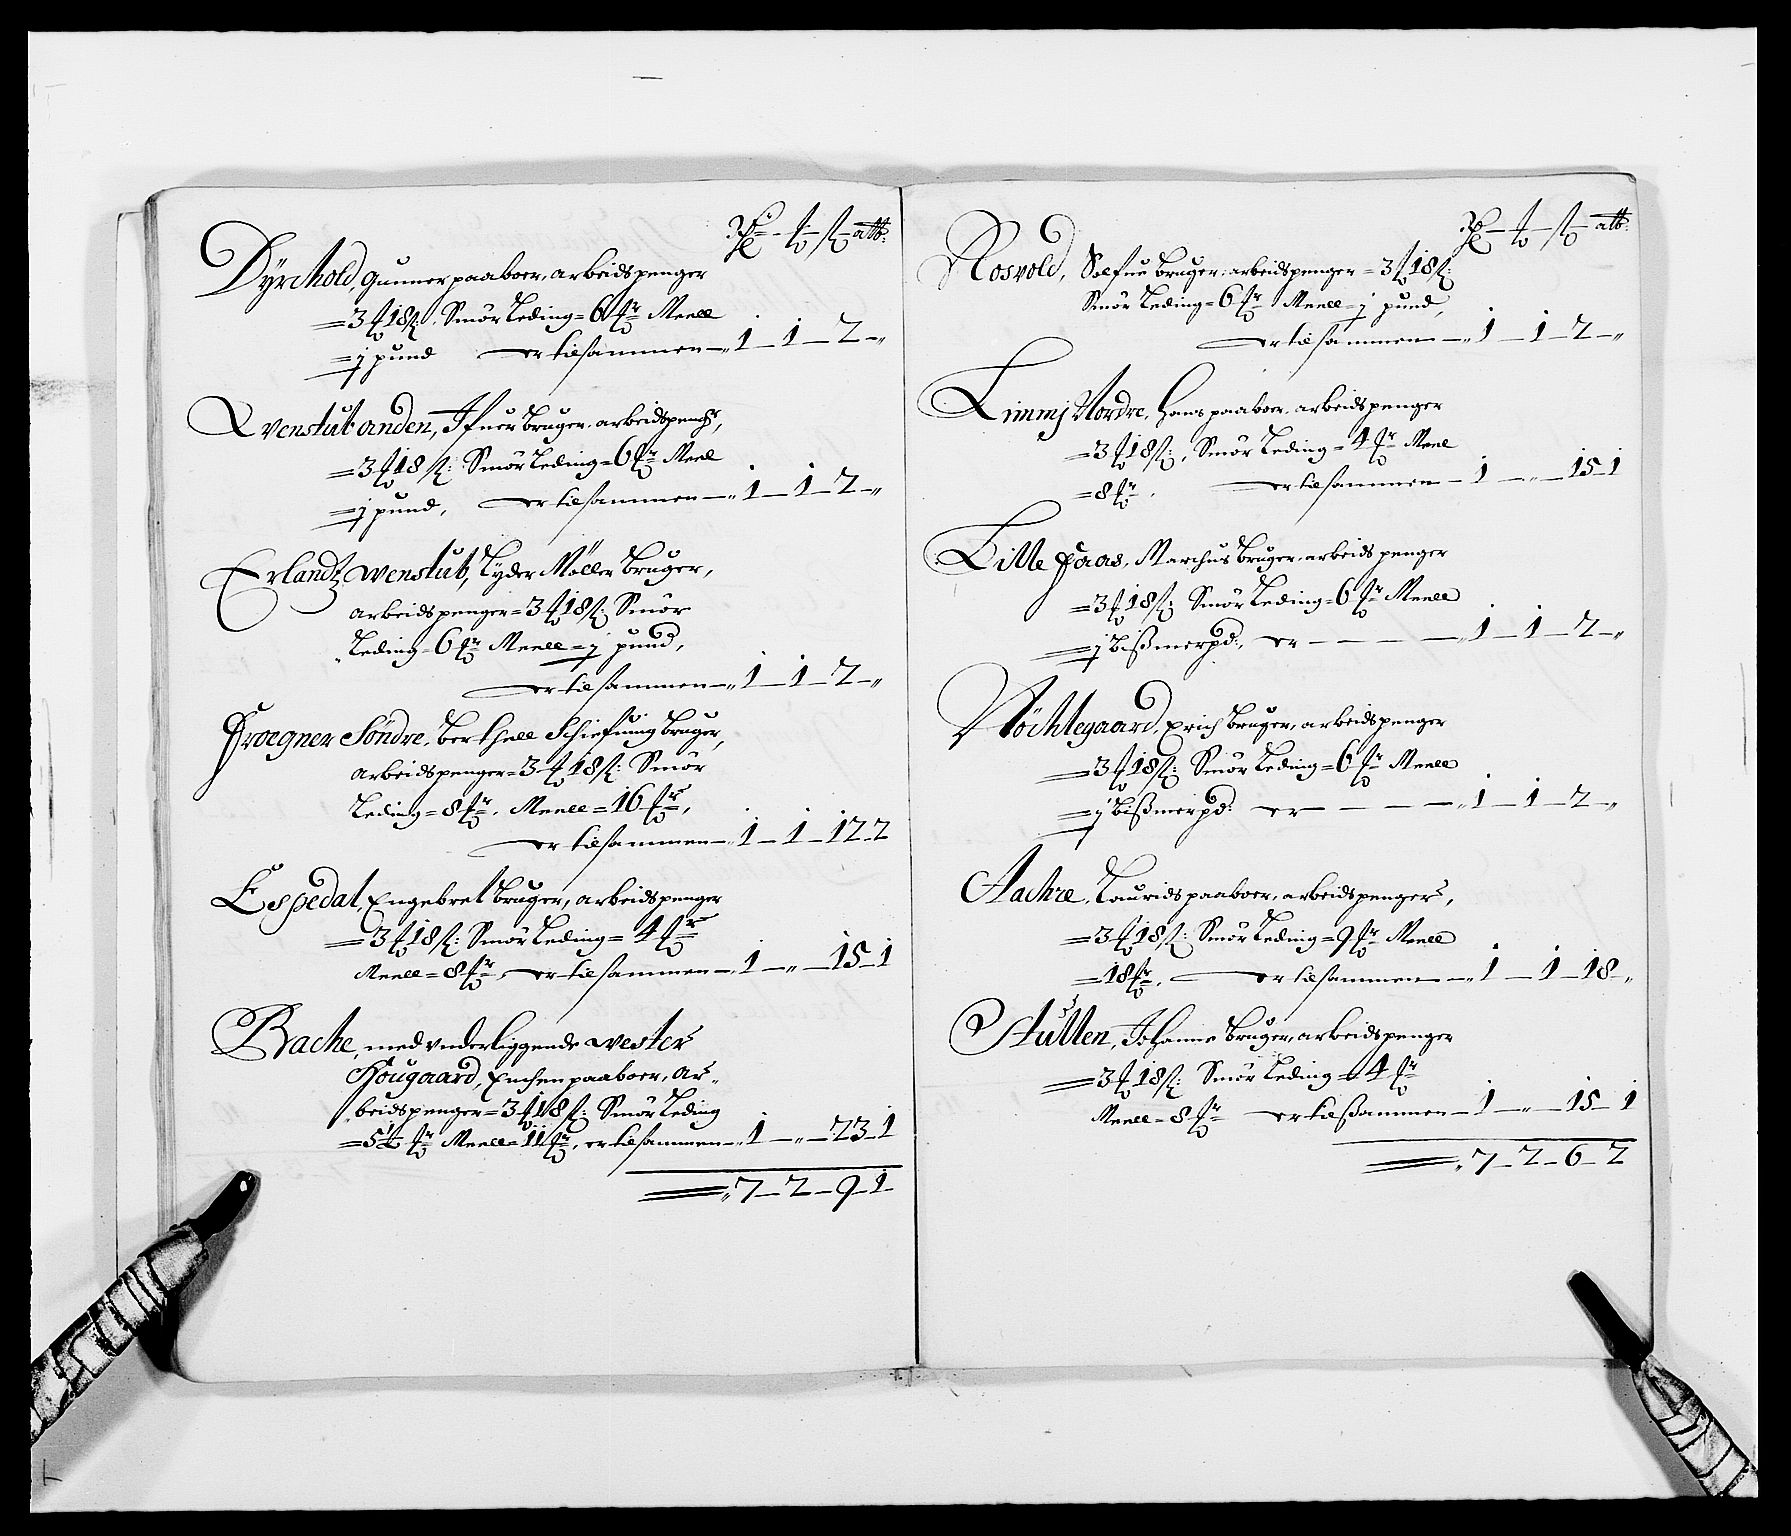 Rdr: - ort - ß - alb:
Dyrchold, Gunner paaboer, arbeidspenger
= 3 ort 18 ß: Smör Leding = 6 mr: Meell
= j pund er tilsammen - „ 1 - 1 - 2 - „
Qvenstub anden, Ifuer bruger, arbeidspengr,
= 3 ort 18 ß: Smör Leding = 6 mr: Meel
= j pund, er tilsammen - „ 1 - 1 - 2 - „
Erlandtz wenstub, Lyder Möller bruger,
arbeidspenger = 3 ort 18 ß: Smör
Leding = 6 mr: Meell = j pund,
er tilsammen - „ 1 - 1 - 2 - „
Froegner Söndre, Berthell bruger,
arbeidspenger = 3 ort 18 ß: Smör
Leding = 8 mr:, Meell = 16 mr:,
er tilsammen - „ 1 - 1 - 12 - 2
Espedal, Engebret bruger, arbeidspenger
= 3 ort 18 ß: Smör Leding = 4 mr:
Meell = 8 mr:, er tilsammen - „ 1 - „ - 15 - 1
Bache, med vnderliggende wester
Hougaard, Enchen paaboer, ar„
„beidspenger = 3 ort 18 ß: Smör Leding
= 5½ mr: Meell = 11 mr:, er tilsammen - „ 1 - „ - 23 - 1
„ 7 - 2 - 9 - 1
Rdr - ort - ß - alb:
Rosvold, Solfue bruger, arbeidspenger = 3 ort 18 ß:
Smör Leding = 6 mr: Meell = j pund,
er tilsammen - „ 1 - 1 - 2 - „
Limmj Nordre, Hans paaboer, arbeidspenger
= 3 ort 18 ß:, Smör Leding = 4 mr: Meel
= 8 mr:, er tilsammen - 1 - „ - 15 - 1
Litle Faas, Marchus bruger, arbeids penger
= 3 ort 18 ß: Smör Leding = 6 mr: Meell
= j Bißmerpd:, er - - - - „ 1 - 1 - 2 - „
Nöchlegaard, Erich bruger, arbeidspenger
= 3 ort 18 ß: Smör Leding = 6 mr: Meell
= j Bißmerpd: er - - - - „ 1 - 1 - 2 - „
Aachre, Laurids paaboer, arbeidspenger,
= 3 ort 18 ß: Smör Leding = 9 mr: Meell
= 18 mr:, er tilsammen - „ 1 - 1 - 18 - „
Hutten, Johanne bruger, arbeidspenger
= 3 ort 18 ß: Smör Leding = 4 mr:
Meell = 8 mr: er tilßammen - 1 - „ - 15 - 1
„ 7 - 2 - 6 - 2